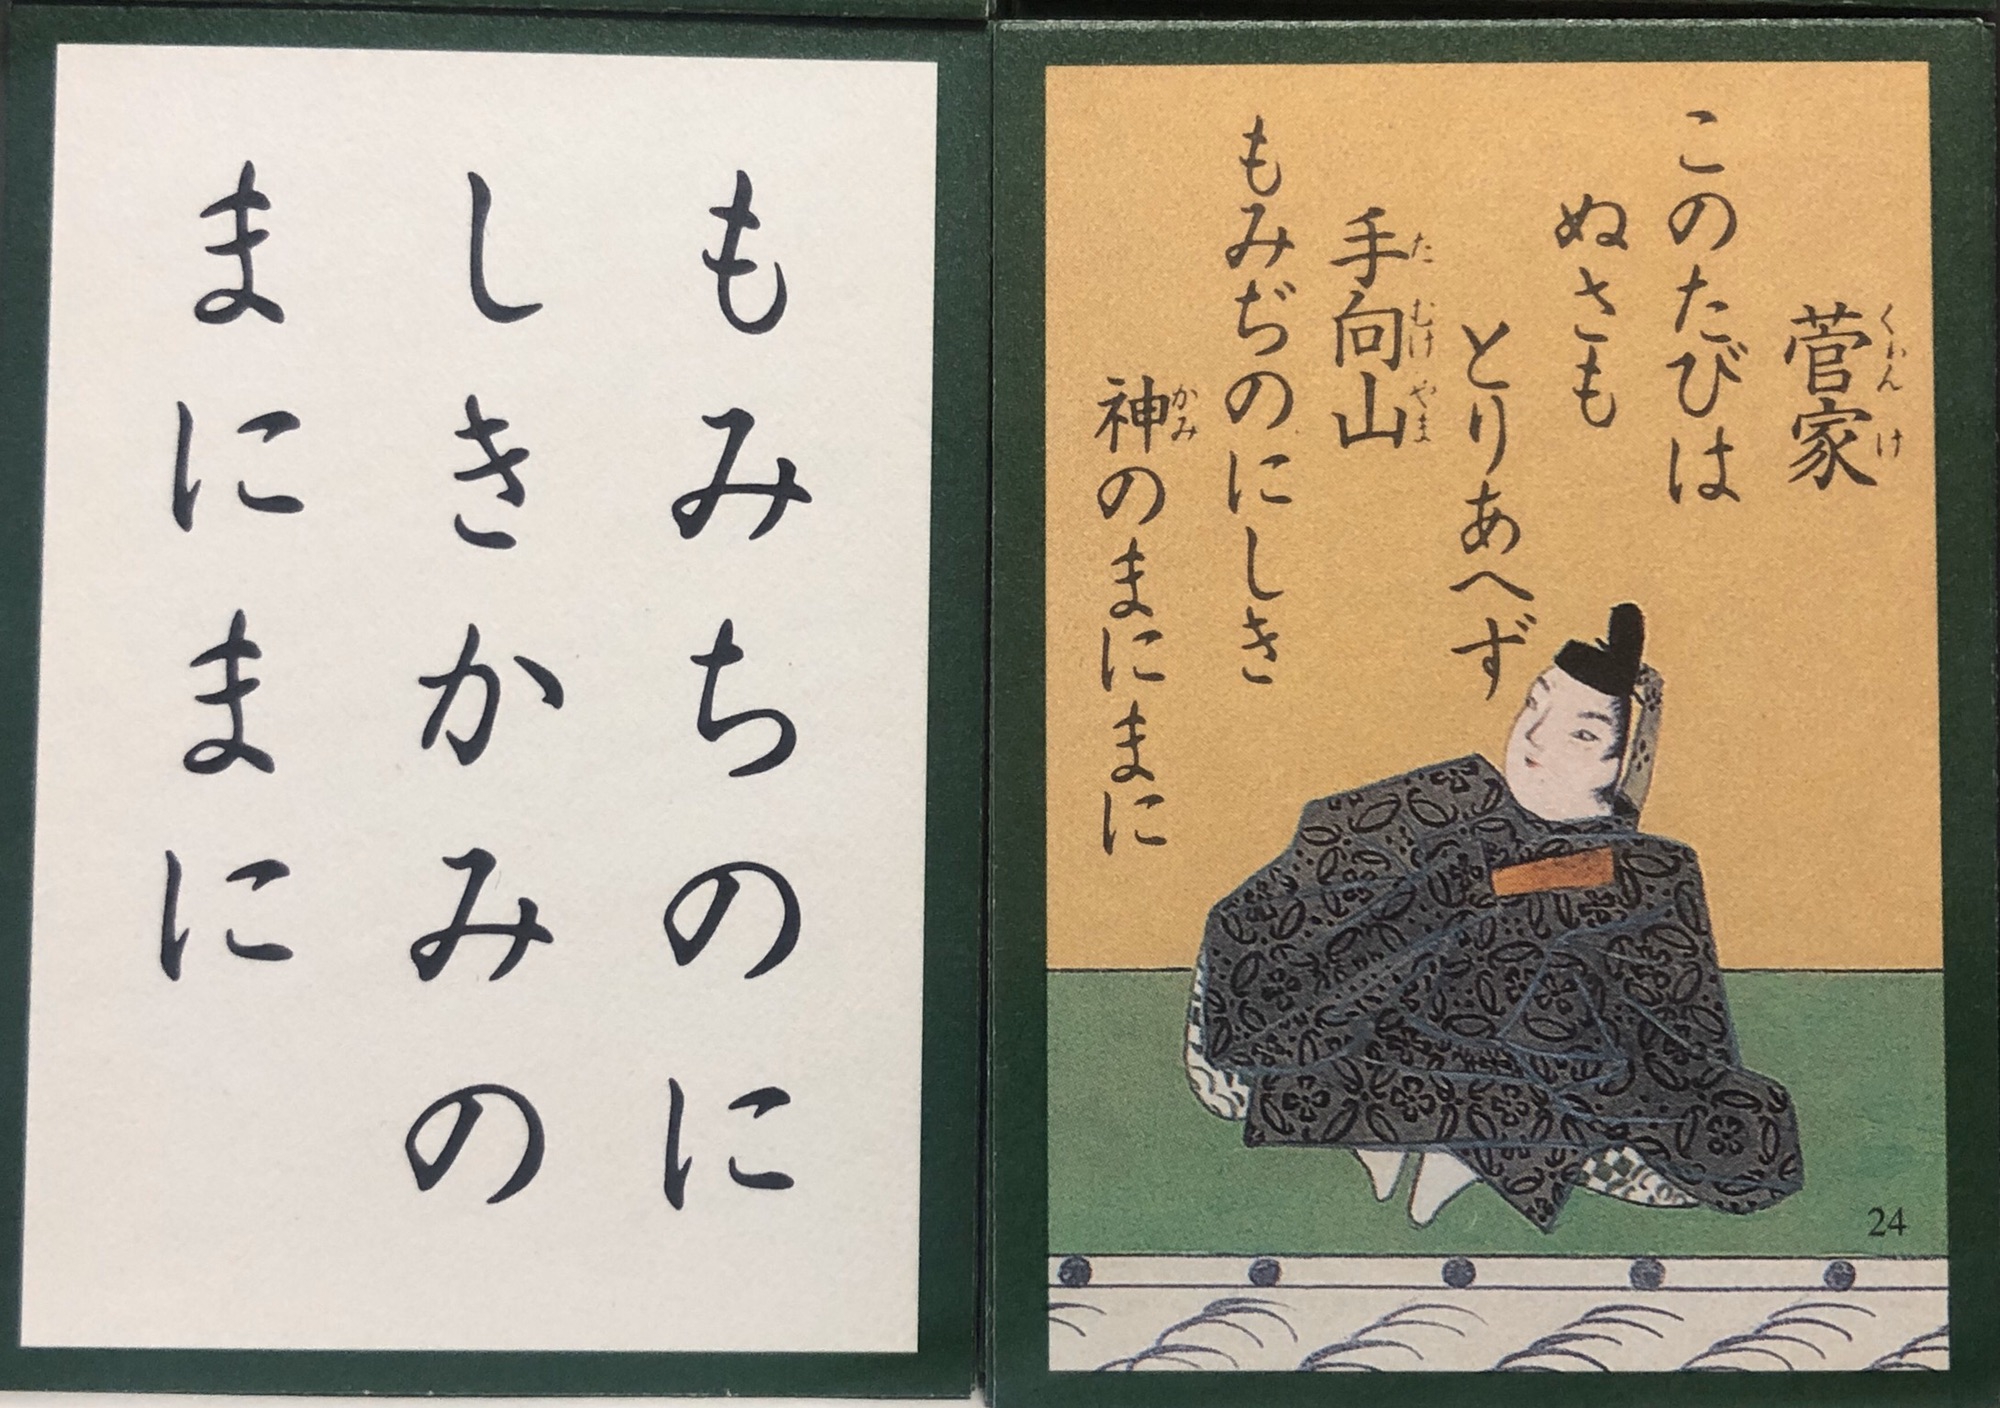 もみちのに
しきかみの
まにまに
菅家
くわんけ
このたびは
ぬさも
とりあへず
手向山
たむけやま
もみぢのにしき
神のまにまに
かみ
24